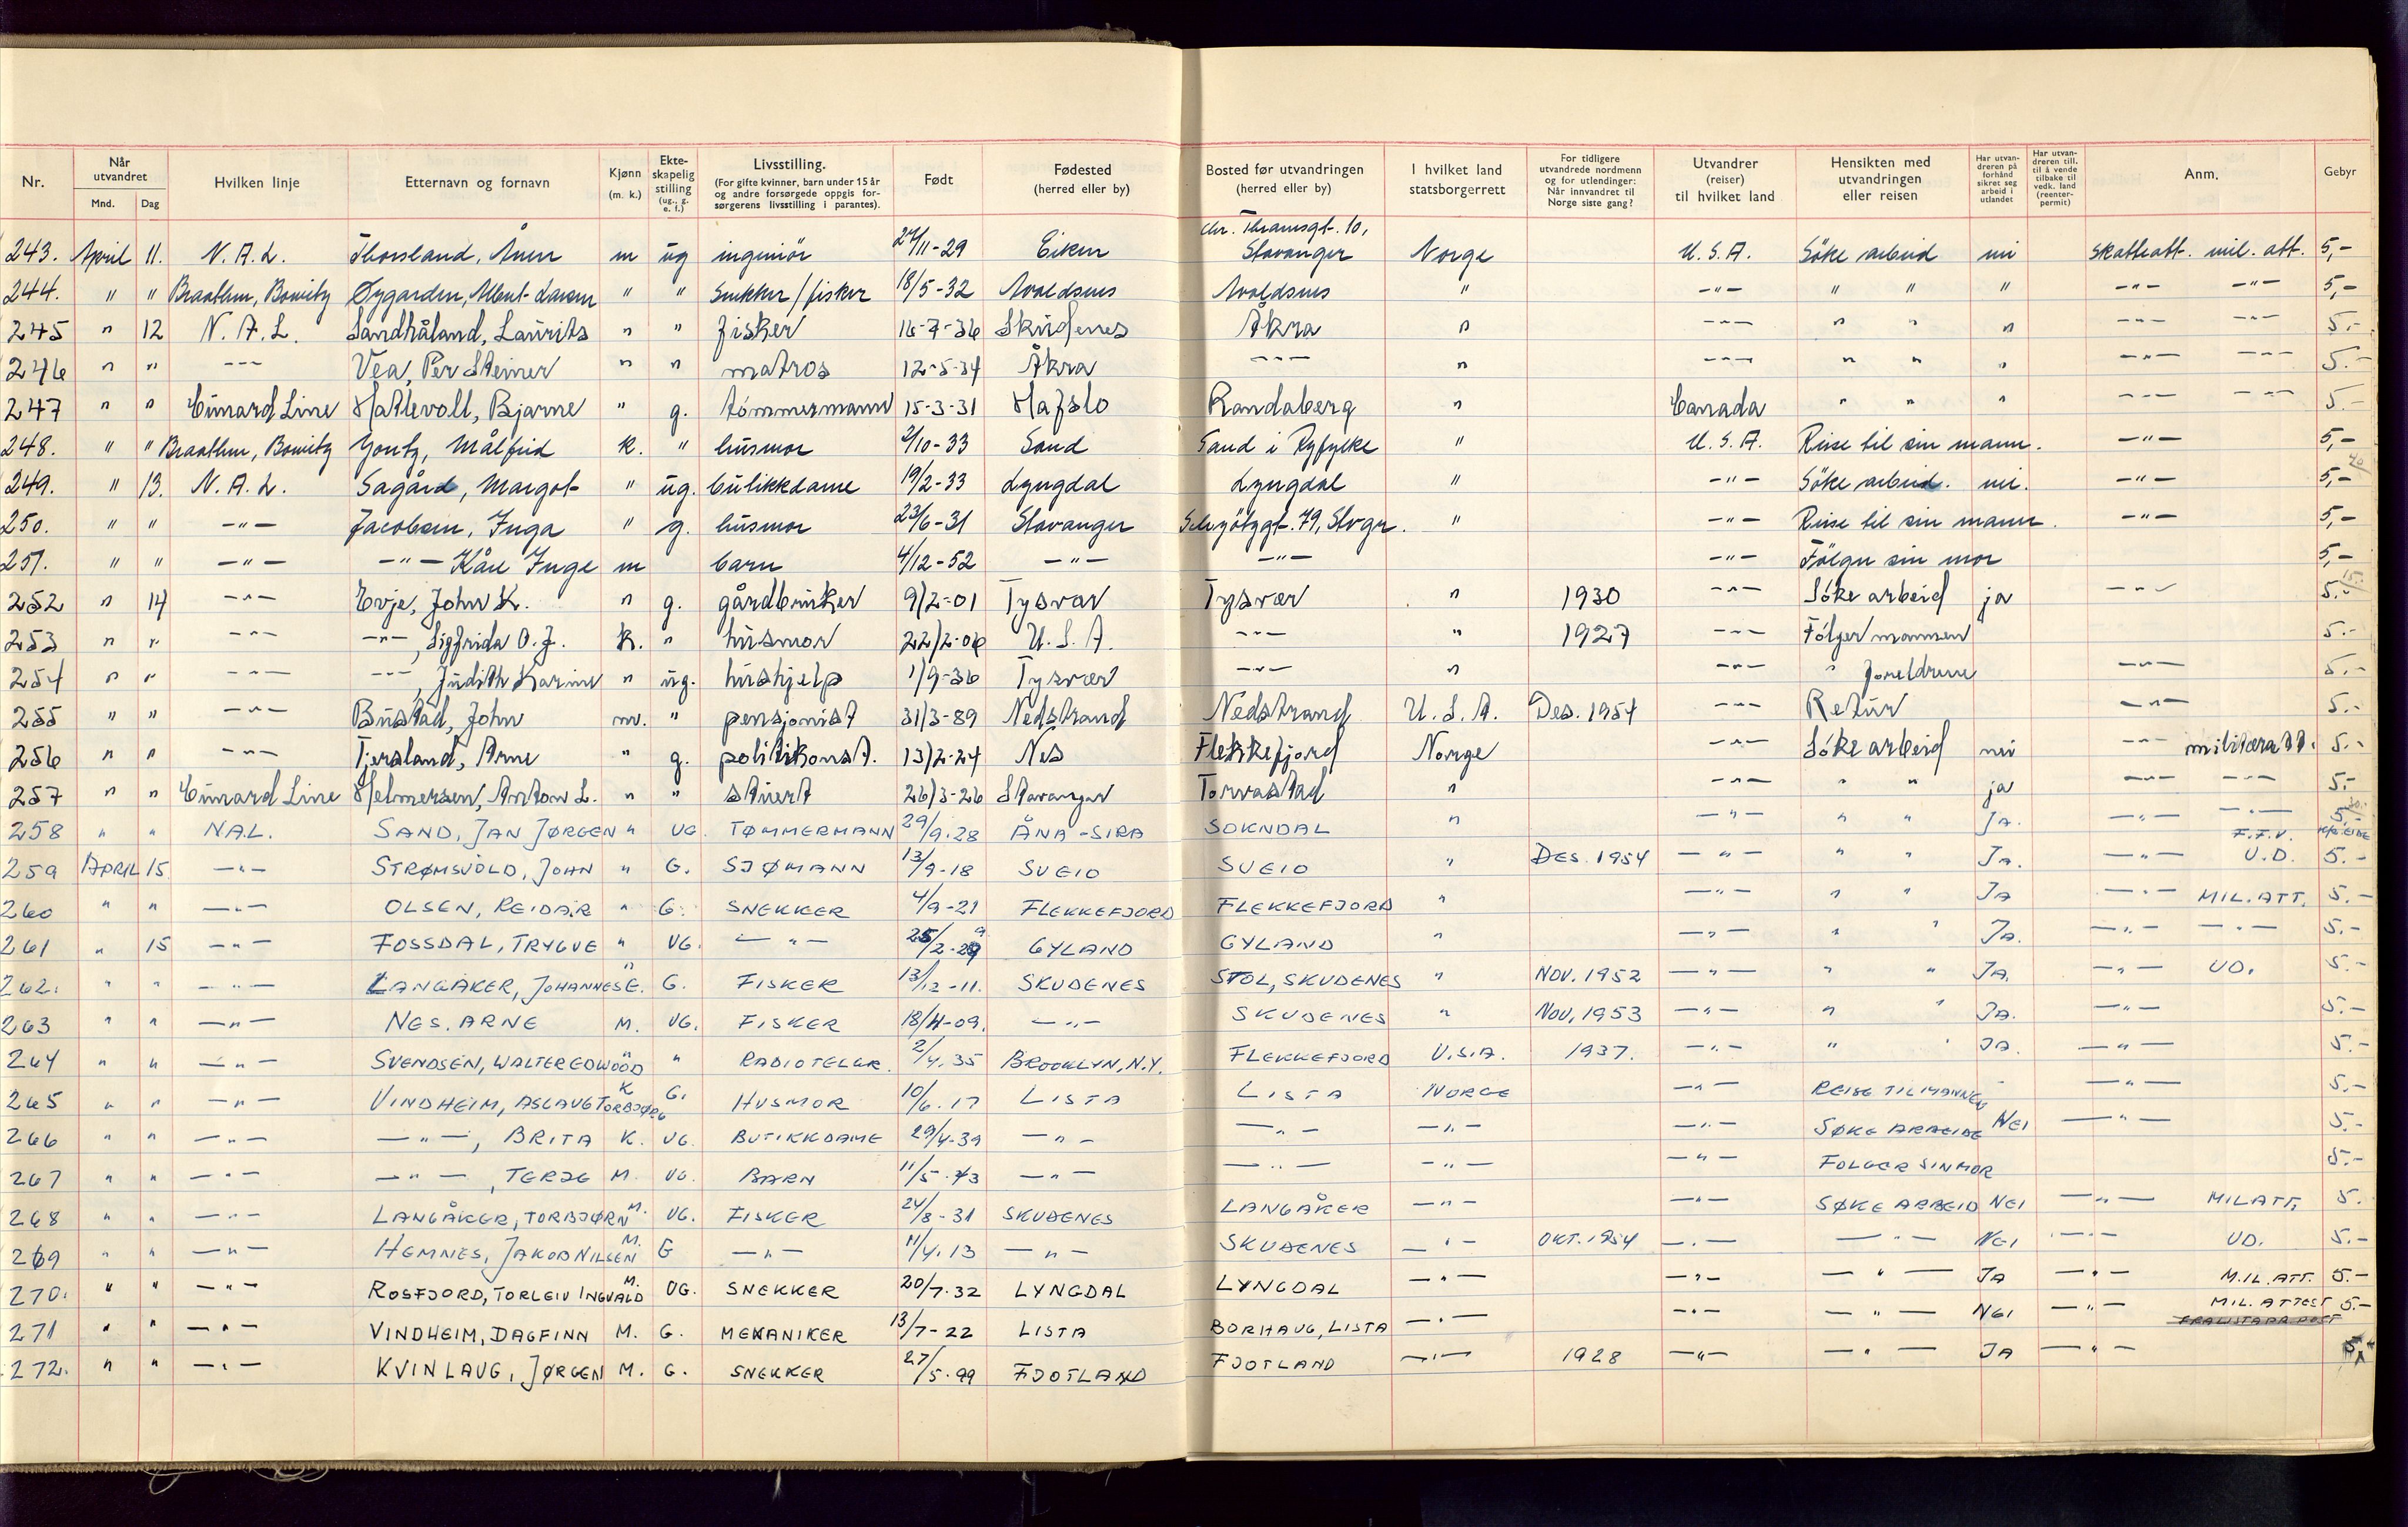 Nr. Når utvandret Mnd. Dag Hvilken linje Etternavn og fornavn Kjønn (m. k.) Ekteskapelig stilling (ug., g. e. f.) Livsstilling. (For gifte kvinner, barn under 15 år og andre forsørgede oppgis forsørgerens livsstilling i parantes). Født Fødested (herred eller by) Bosted før utvandringen (herred eller by) I hvilket land statsborgerrett For tidligere utvandrede nordmenn og for utlendinger: Når innvandret til Norge siste gang? Utvandrer (reiser) til hvilket land Hensikten med utvandringen eller reisen Har utvandreren på forhånd sikret seg arbeid i utlandet Har utvandreren till. til å vende tilbake til vedk. land (reenterpermit) Anm. Gebyr
Chr. Thramsgt. 10,
243. April 11. N. A. L. Thorsland, m ug ingeniör 24/11-29 Eiken Stavanger Norge U. S. A. Söke arbeid nei skatteatt. mil. att. 5,-
244. " " Braathen, Øygarden, " " Snekker/fisker 18/5-32 Avaldsnes Avaldsnes " -"- " " " -"- -"- 5,-
245 " 12 N. A. L. Sandhåland, Laurits " " fisker 16-7-36 Skudenes Åkra " -"- " " " -"- -"- 5.-
246 " " -"- Vea, Per Steiner " " matros 12-5-34 Åkra -"- " -"- " " " -"- -"- 5.-
247 " " Cunard Line Hatlevoll, Bjarne " g. tömmermann 15-3-31 Hafslo Randaberg " Canada " " " -"- -"- 5.-
248. " " Braathen, Yontz, Målfrid k. " husmor 2/10-33 Sand Sand i Ryfylke " U. S. A. Reise til sin mann. -"- 5,-
249. " 13. N. A. L. Sagård, Margot " ug. butikkdame 19/2-33 Lyngdal Lyngdal " -"- Söke arbeid. nei. -"- 5,-
250. " " -"- Jacobsen, Inga " g. husmor 23/6-31 Stavanger 79, Stvgr. " -"- Reise til sin mann. -"- 5,-
251. " " -"- -"- Kåre Inge m barn 4/12-52 -"- -"- -"- Fölger sin mor 5,-
252 " 14 -"- Evje, John K. " g. gårdbruker 9/2-01 Tysvær Tysvær " 1930 -"- Söke arbeid ja -"- 5.-
253 " " -"- -"-, Sigfrida O. J. k. " husmor 22/2-06 U. S. A. -"- " 1927 -"- Fölger mannen 5.-
254 " " -"- -"-, Judith Karine " ug. hushjelp 1/9-36 Tysvær -"- " -"- " foreldrene -"- 5.-
255 " " -"- Bustad, John m. " pensjonist 31/3-89 Nedstrand Nedstrand U. S. A. Des. 1954 -"- Retur -"- 5.-
256 " " -"- Tjersland, Arne " g. politikonst. 13/2-24 Nes Flekkefjord Norge -"- Söke arbeid nei -"- militæratt. 5.-
257 " " Cunard Line Helmersen, Anton L. " " stuert 26/3-26 Stavanger Torvastad " -"- " " ja -"- -"- 5.-
258 " " NAL. SAND, JAN JØRGEN " UG. TØMMERMANN 29/9.28 ÅNA-SIRA SOKNDAL " -"- " " JA. -"- -"- 5,-
F.F.V.
259 APRIL 15 -"- STRØMSVOLD, JOHN " G. SJØMANN 13/9-18 SVEIO SVEIO " DES. 1954 -"- " " JA. -"- U.D. 5.-
260 " " -"- OLSEN, REIDAR " G. SNEKKER 4/9-21 FLEKKEFJORD FLEKKEFJORD " -"- " " JA -"- MIL. ATT. 5.-
261 " 15 -"- FOSSDAL, TRYGVE " UG. -"- 25/2-29 GYLAND GYLAND " -"- " " JA. -"- -"- 5.-
262. " " -"- LANGÅKER, JOHANNES E. " G. FISKER 13/12-11. SKUDENES STOL, SKUDENES " NOV. 1952 -"- " " JA. -"- UD. 5.-
263 " " -"- NES. ARNE M. UG. FISKER 18/4-09. -"- SKUDENES " NOV, 1953 -"- " " JA. -"- 5.-
264 " " -"- SVENDSEN, WALTER EDWOOD " " RADIOTELGR. 2/4.35 BROOKLYN, N.Y. FLEKKEFJORD U.S.A. 1937. -"- " " JA. -"- 5.-
265 " " -"- VINDHEIM, ASLAUG TORBJØRG K G. HUSMOR 10/6.17 LISTA LISTA NORGE -"- REISE TIL MANNEN - -"- 5.-
266 " " -"- -"-, BRITA K. UG. BUTIKKDAME 29/4-39 -"- -"- -"- -"- SØKE ARBEIDE NEI -"- 5.-
267 " " -"- -"-, TERJE M. UG. BARN 11/5.43 -"- -"- -"- -"- FØLGER SIN MOR 5.-
268 " " -"- LANGÅKER, TORBJØRN M. UG. FISKER 24/8-31 SKUDENES LANGÅKER -"- -"- SØKE ARBEID NEI -"- MILATT, 5.
269 " " -"- HEMNES, JAKOB NILSEN M. G -"- 11/4.13 -"- SKUDENES -"- OKT. 1954 -"- -"- NEI -"- UD. 5.-
270. " " -"- ROSFJORD, TORLEIV INGVALD M. UG. SNEKKER 20/7.32 LYNGDAL LYNGDAL -"- -"- -"- JA -"- MIL. ATT. 5.-
271 " " -"- VINDHEIM, DAGFINN M. G. MEKANIKER 13/7-22 LISTA BORHAUG, LISTA -"- -"- -"- NEI -"- MIL. ATTEST 5.-
272. " " -"- KVINLAUG, JØRGEN M. G. SNEKKER 27/5.99 FJOTLAND FJOTLAND -"- 1928 -"- -"- JA -"- 5,-